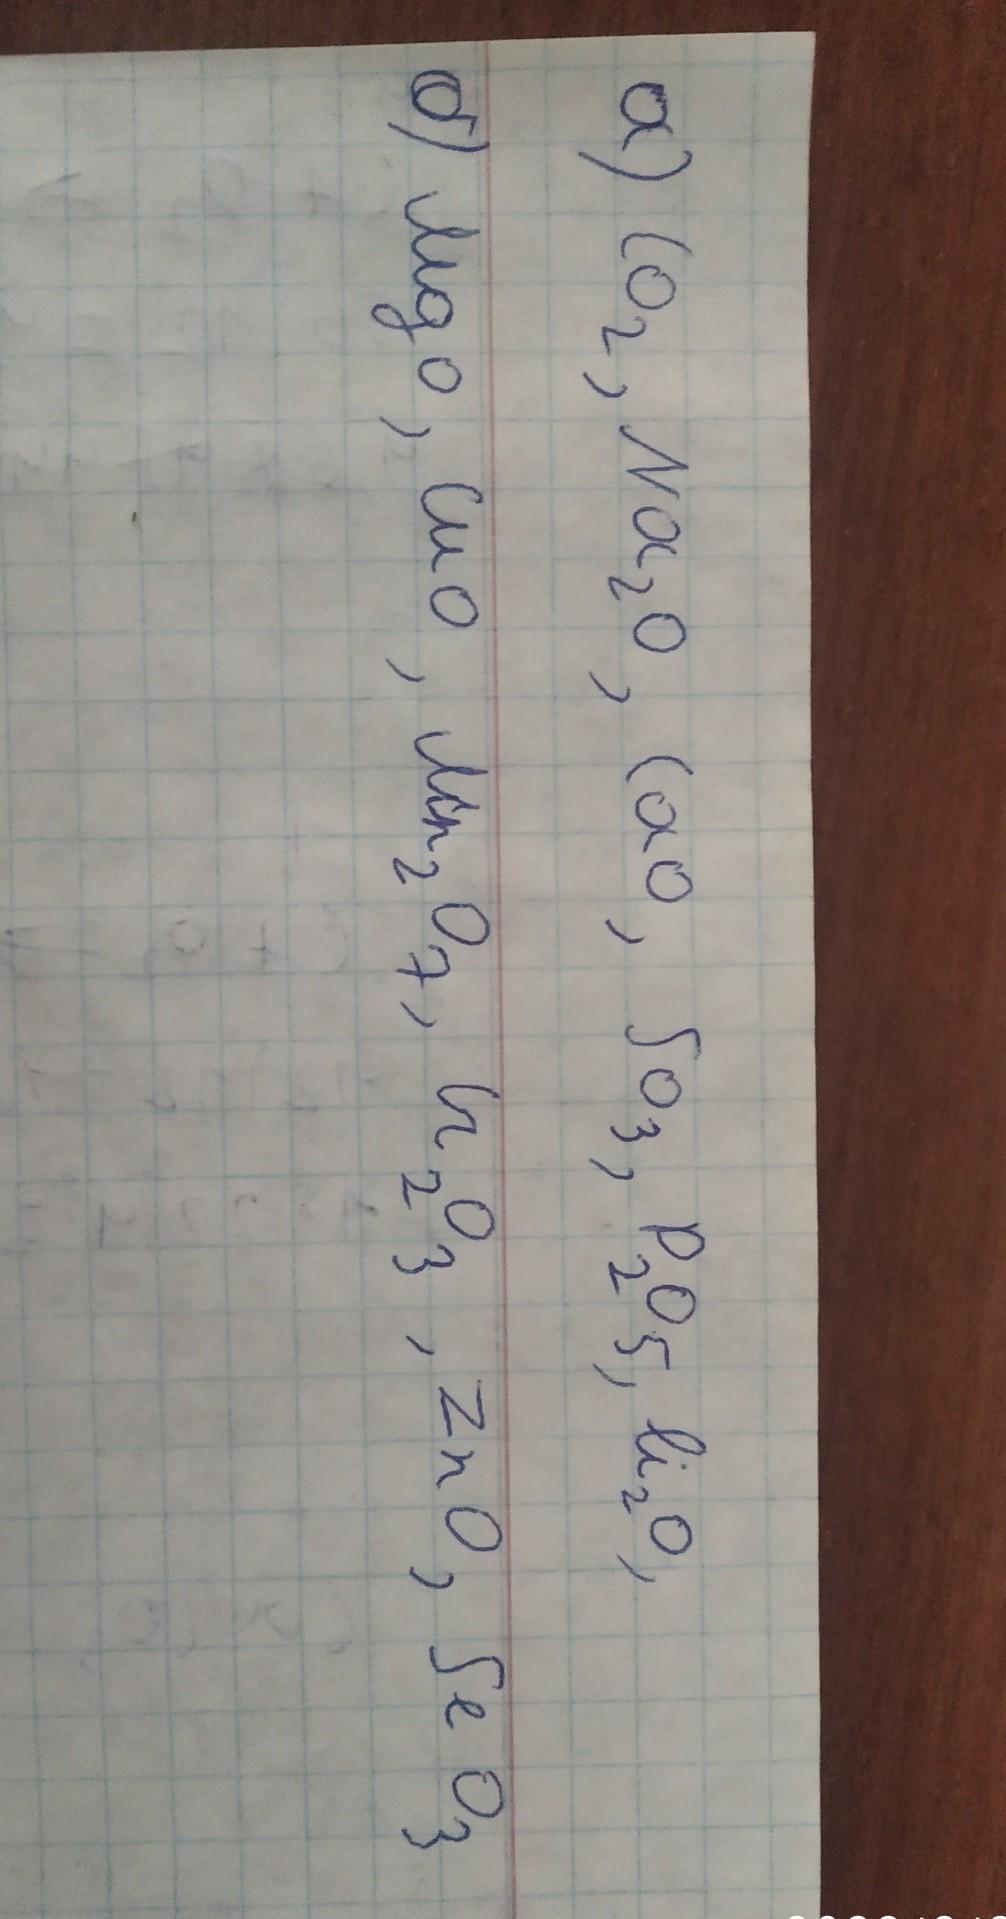 а) CO₂, Na₂O, CaO, SO₃, P₂O₅, Li₂O,
б) MgO, CuO, Mn₂O₇, Cr₂O₃, ZnO, SeO₃